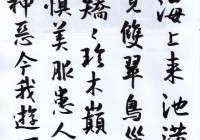 海上来池潢
見雙翠鳥巢
矯々珍木巔
懼美服患人
神惡今我遊